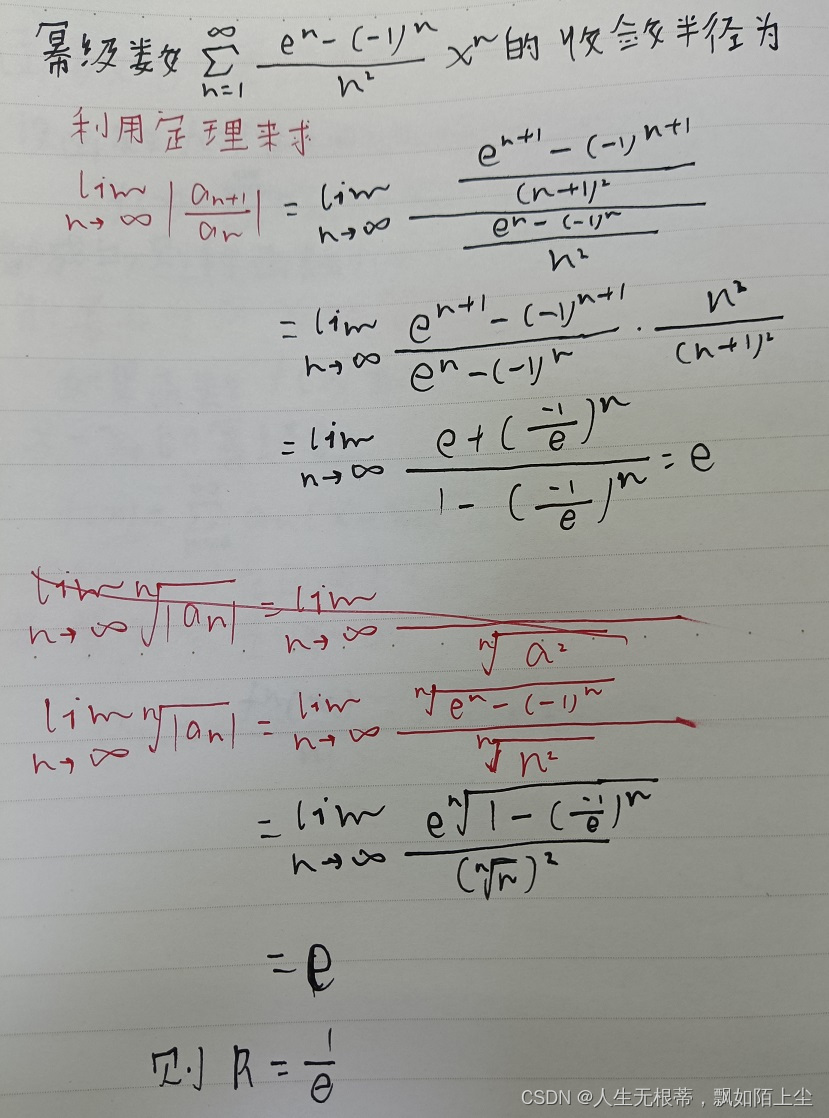 幂级数 ∑_{n=1}^{∞} \frac{e^n-(-1)^n}{n^2} x^n 的收敛半径为
利用定理来求
lim_{n→∞} |\frac{a_{n+1}}{a_n}| = lim_{n→∞} \frac{\frac{e^{n+1}-(-1)^{n+1}}{(n+1)^2}}{\frac{e^n-(-1)^n}{n^2}}
= lim_{n→∞} \frac{e^{n+1}-(-1)^{n+1}}{e^n-(-1)^n} · \frac{n^2}{(n+1)^2}
= lim_{n→∞} \frac{e+(\frac{-1}{e})^n}{1-(\frac{-1}{e})^n} = e
lim_{n→∞} \sqrt[n]{|a_n|} = lim_{n→∞} \frac{}{\sqrt[n]{a^2}}
lim_{n→∞} \sqrt[n]{|a_n|} = lim_{n→∞} \frac{\sqrt[n]{e^n-(-1)^n}}{\sqrt[n]{n^2}}
= lim_{n→∞} \frac{e\sqrt[n]{1-(\frac{-1}{e})^n}}{(\sqrt[n]{n})^2}
= e
则 R = \frac{1}{e}
CSDN @人生无根蒂，飘如陌上尘